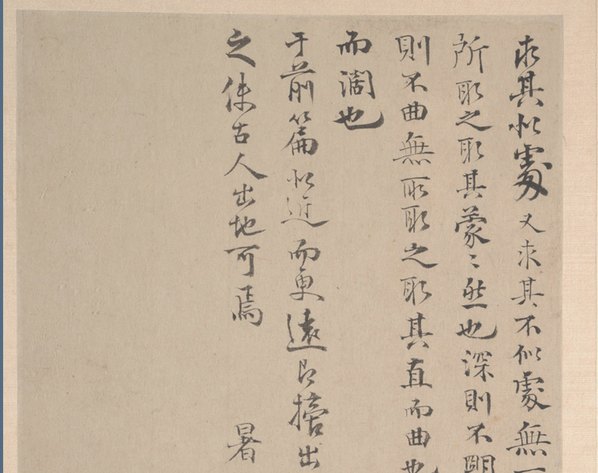 求其似處又求其不似處無
所取之取其蒙〻然也深則不明
則不曲無所取之取其直而曲也
而濶也
于前篇似近而更遠已搭出
之使古人出地可焉
暑